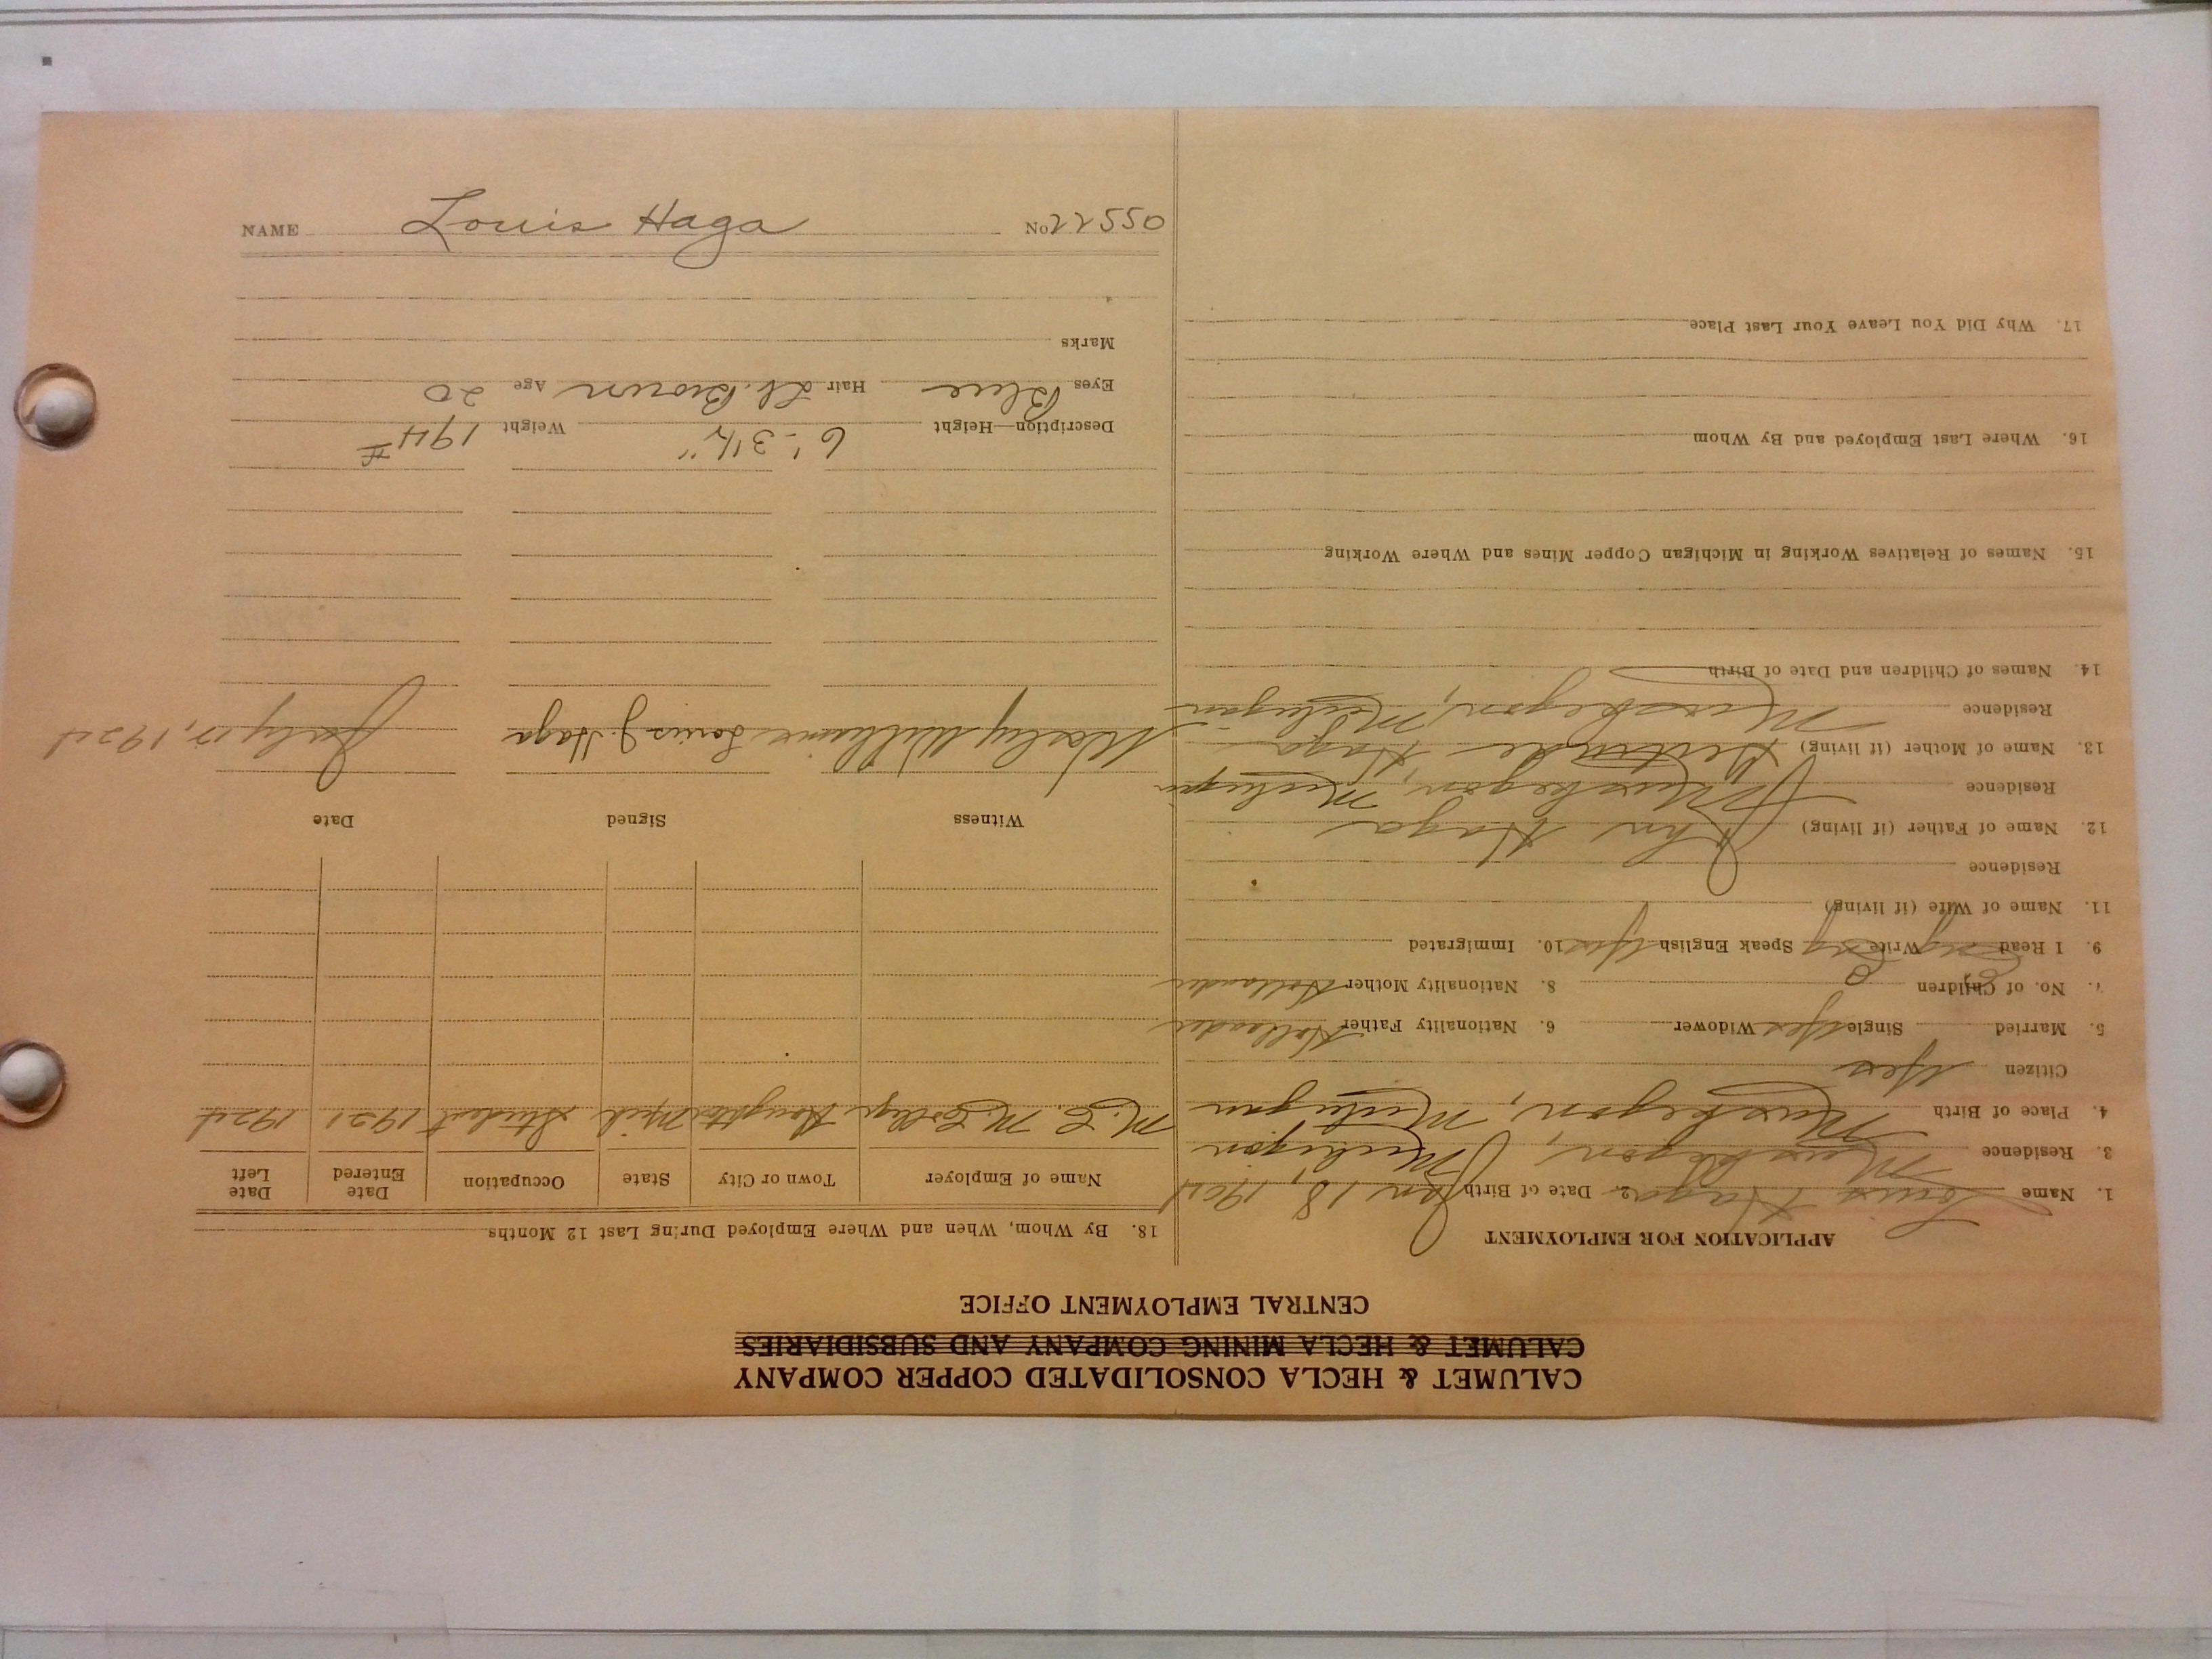 CALUMET & HECLA CONSOLIDATED COPPER COMPANY
CALUMET & HECLA MINING COMPANY AND SUBSIDIARIES
CENTRAL EMPLOYMENT OFFICE
APPLICATION FOR EMPLOYMENT
1. Name Louis Haga 2. Date of Birth Jan 18, 1904
3. Residence Muskegon, Michigan
4. Place of Birth Muskegon, Michigan
Citizen Yes
5. Married Single Yes Widower 6. Nationality Father Hollander
7. No. of Children 0 8. Nationality Mother Hollander
9. I Read Eng Write Eng Speak English Yes 10. Immigrated
11. Name of Wife (if living)
Residence
12. Name of Father (if living) John Haga
Residence Muskegon, Michigan
13. Name of Mother (if living) Gertrude Haga
Residence Muskegon, Michigan
14. Names of Children and Date of Birth
15. Names of Relatives Working in Michigan Copper Mines and Where Working
16. Where Last Employed and By Whom
17. Why Did You Leave Your Last Place
18. By Whom, When and Where Employed During Last 12 Months
Name of Employer Town or City State Occupation Date Entered Date Left
M. C. M. College Houghton Mich Student 1921 1924
Witness Signed Date
Williams Louis J. Haga July 17, 1924
Description—Height 6'-3½" Weight 194#
Eyes Blue Hair Lt. Brown Age 20
Marks
NAME Louis Haga No 22550